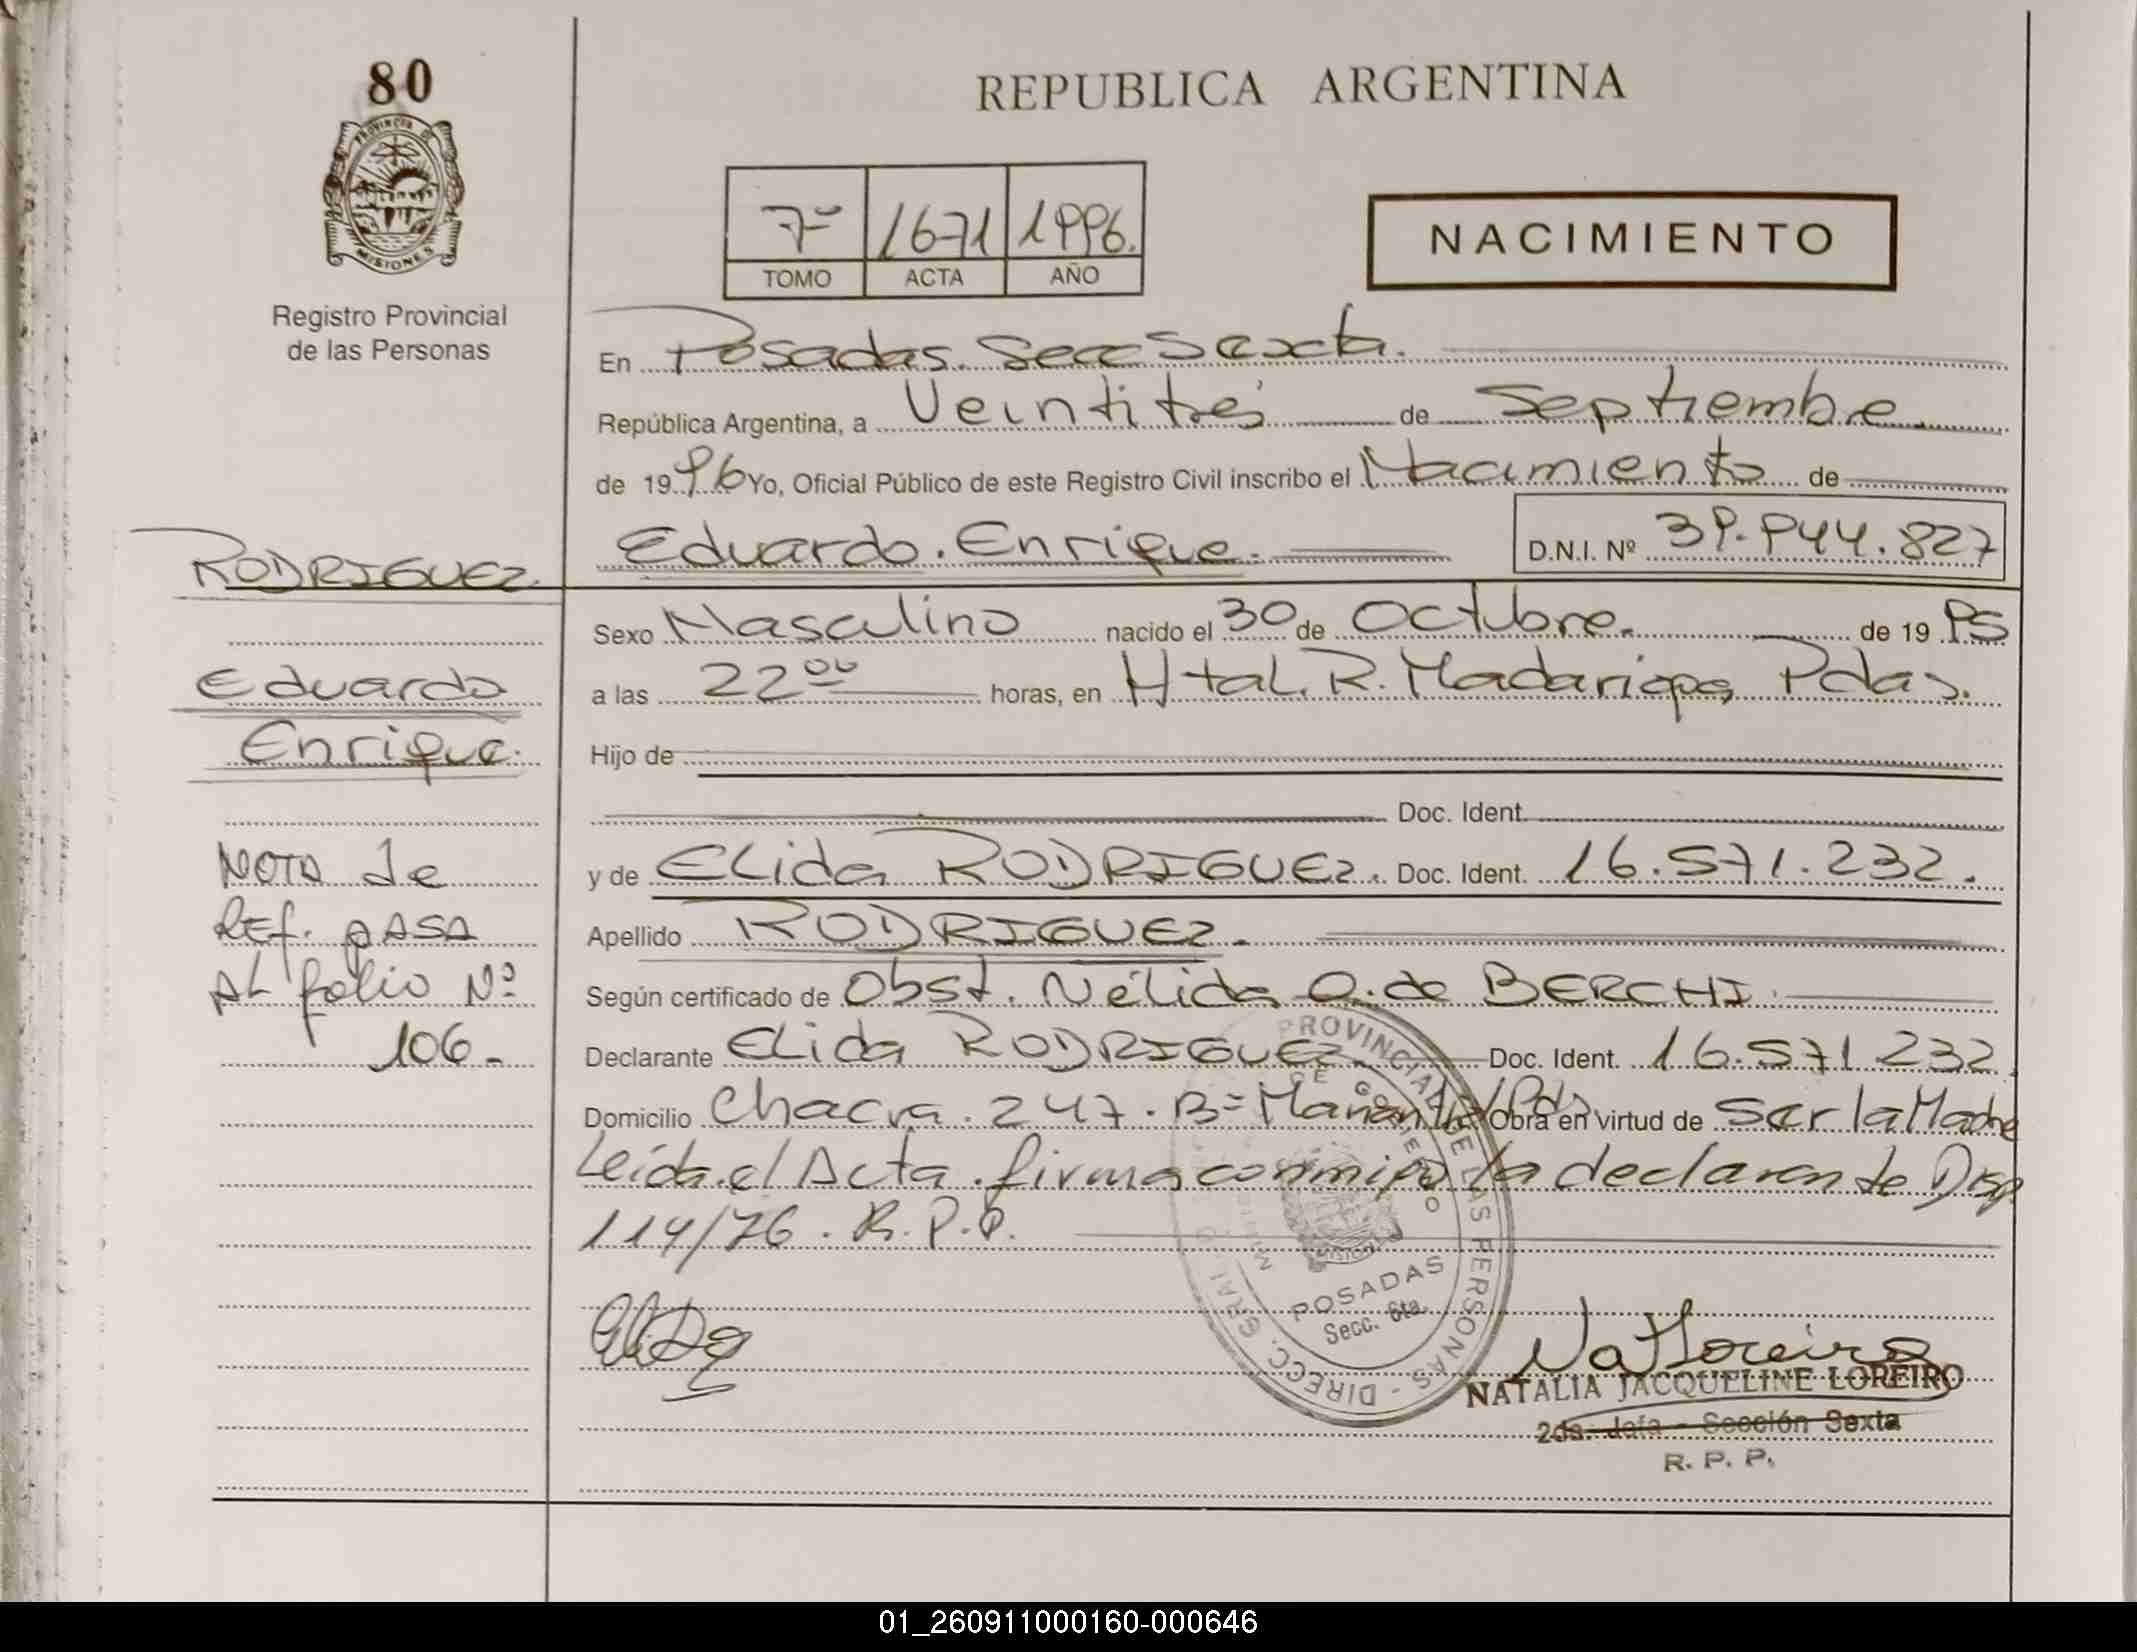 80
REPUBLICA ARGENTINA
PROVINCIA DE MISIONES
7º 1671 1996.
TOMO ACTA AÑO
NACIMIENTO
Registro Provincial
de las Personas
En Posadas. Secc Sexta.
República Argentina, a Veintitrés de Septiembre
de 1996 Yo, Oficial Público de este Registro Civil inscribo el Nacimiento de
Eduardo. Enrique. D.N.I. Nº 39.944.827
RODRIGUEZ.
Sexo Masculino nacido el 30 de Octubre. de 19 95
Eduardo
a las 22 00 horas, en Htal. R. Madariaga Pdas.
Enrique.
Hijo de
Doc. Ident.
NOTA de
y de ELida RODRIGUEZ. Doc. Ident. 16.571.232.
REF. pASA
Apellido RODRIGUEZ.
AL folio Nº
Según certificado de Obst. Nélida O. de BERCHI.
106.-
Declarante ELida RODRIGUEZ Doc. Ident. 16.571.232.
Domicilio Chacra. 247. Bº Obra en virtud de Ser la Madre
Leída el Acta. firma conmigo la declarante Disp.
114/76. R.P.P.
PROVINCIAL DE LAS PERSONAS - DIRECC. GRAL.
DE GOBIERNO
MISIONES
POSADAS
Secc. 6ta.
Elida
Na Loreiro
NATALIA JACQUELINE LOREIRO
2da. Jefa - Sección Sexta
R. P. P.
01_260911000160-000646